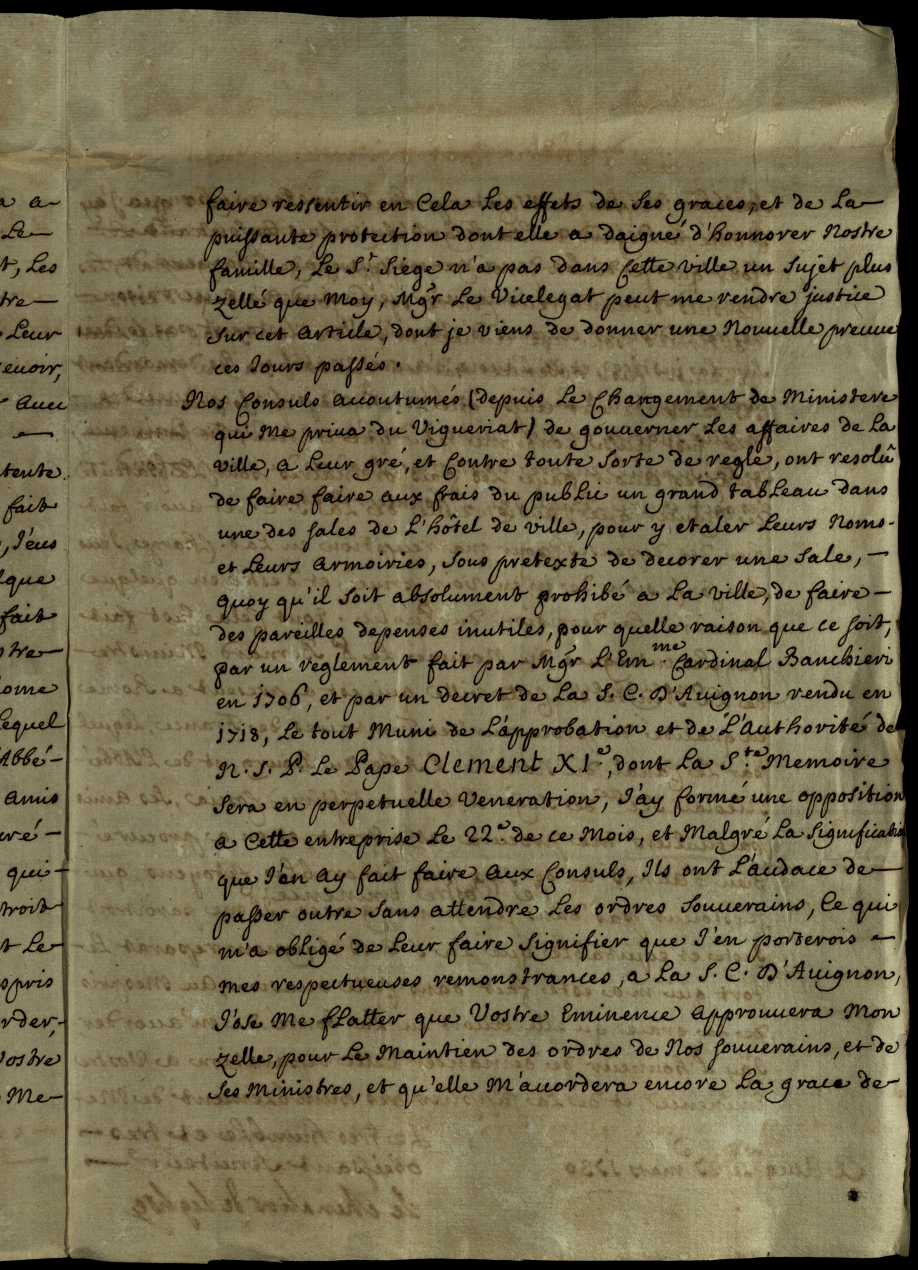 faire ressentir en Cela Les effets de ses graces, et de La
puissante protection dont elle a daigné d'honnorer Nostre
famille, Le St. Siège n'a pas dans Cette ville un sujet plus
zellé que Moy, Mgr Le Vicelegat peut me rendre justice
sur cet Article, dont je viens de donner une Nouvelle preuue
ces Jours passés.
Nos Consuls accoutumés (depuis Le Changement de Ministere
qui Me priua du Vigueriat) de gouuerner Les affaires de La
ville, a Leur gré, et Contre toute Sorte de regle, ont resolû
de faire faire aux frais du public un grand tableau dans
une des sales de L'hôtel de ville, pour y etaler Leurs Noms
et Leurs Armoiries, sous pretexte de decorer une Sale,
quoy qu'il soit absolument prohibé a La ville, de faire
des pareilles depenses inutiles, pour quelle raison que ce soit,
par un reglement fait par Mgr L'Emme. Cardinal Banchieri
en 1706, et par un decret de La S. C. D'Auignon rendu en
1718, Le tout Muni de L'approbation et de L'Authorité de
N. S. P. Le Pape Clement XIe, dont La Ste Memoire
sera en perpetuelle Veneration, J'ay formé une opposition
a Cette entreprise Le 22e. de ce Mois, et Malgré La Significatio
que J'en Ay fait faire Aux Consuls, Ils ont L'audace de
passer outre sans attendre Les ordres souuerains, Ce qui
m'a obligé de Leur faire signifier que J'en porterois
mes respectueuses remonstrances, a La S. C. D'Auignon,
J'ose Me flatter que Vostre Eminence Approuuera Mon
zelle, pour Le Maintien des ordres de Nos souuerains, et de
ses Ministres, et qu'elle M'acordera encore La grace de
a
Le
t, Les
tre
Leur
euoir,
Auec
tente
fait
, J'eus
lque
fait
stre
ome
Lequel
Abbé
Amis
uré
qui
troit
t Le
spris
rder,
Vostre
Me